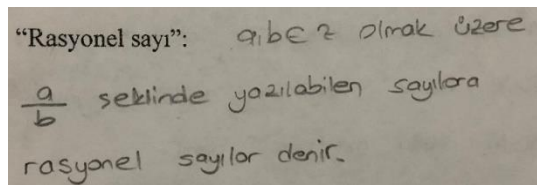 “Rasyonel sayı”: a,b∈Z olmak üzere
a/b şeklinde yazılabilen sayılara
rasyonel sayılar denir.